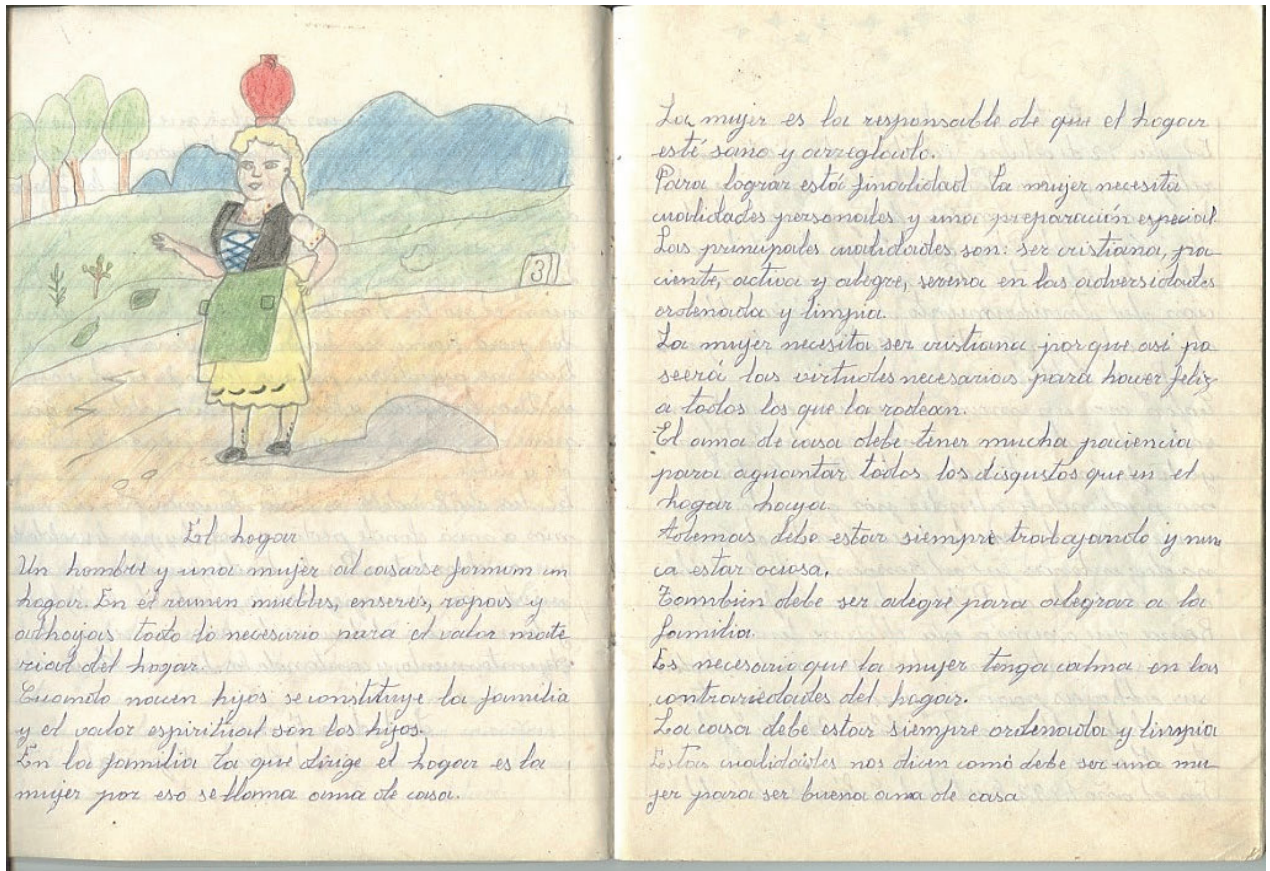 3
El hogar
Un hombre y una mujer al casarse forman un
hogar. En él reunen muebles, enseres, ropas y
alhajas todo lo necesario para el valor mate
rial del hogar.
Cuando nacen hijos se constituye la familia
y el valor espiritual son los hijos.
En la familia la que dirige el hogar es la
mujer por eso se llama ama de casa.
La mujer es la responsable de que el hogar
esté sano y arreglado.
Para lograr está finalidad la mujer necesita
cualidades personales y una preparación especial
Las principales cualidades son: ser cristiana, pa
ciente, activa y alegre, serena en las adversidades
ordenada y limpia.
La mujer necesita ser cristiana porque asi po
seerá las virtudes necesarias para hacer feliz
a todos los que la rodean.
El ama de casa debe tener mucha paciencia
para aguantar todos los disgustos que en el
hogar haya.
Ademas debe estar siempre trabajando y nun
ca estar ociosa.
Tambien debe ser alegre para alegrar a la
familia.
Es necesario que la mujer tenga calma en las
contrariedades del hogar.
La casa debe estar siempre ordenada y limpia
Estas cualidades nos dicen comó debe ser una mu
jer para ser buena ama de casa